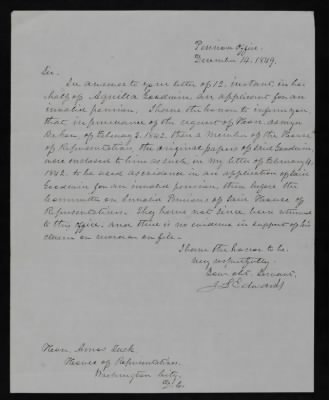 Pension Office.
December 14. 1849.
Sir.
In answer to your letter of 12. instant in be
half of Aquilla Goodwin an applicant for an
invalid pension. I have the honor to inform you
that in pursuance of the request of Hon.
of February 3. 1842. then a Member of the House
of Representatives the original papers of said Goodwin,
were enclosed to him as such in my letter of February 4.
1842. to be used as evidence in an application of said
Goodwin for an invalid pension, then before the
Committee on Invalid Pensions of said House of
Representatives. They have not since been returned
to this office, and there is no evidence in support of his
claim on record or on file.
I have the honor to be
very respectfully
Your obt. Servant.
J. L. Edwards
Hon. Amos Tuck
House of Representatives.
Washington City.
D. C.